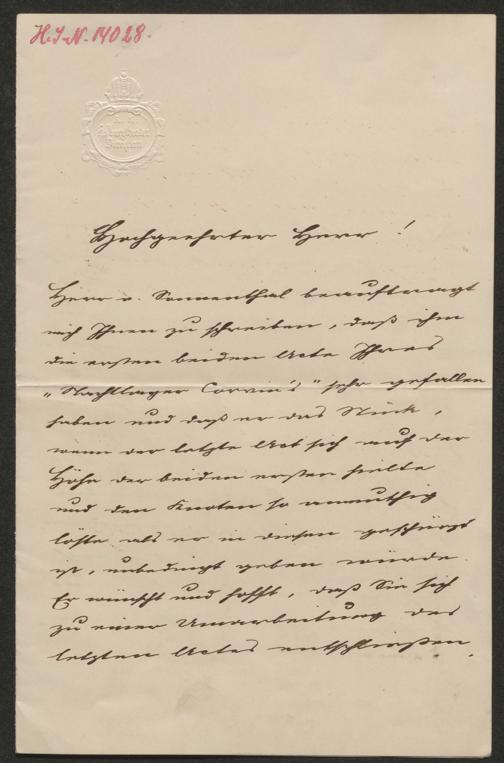 H.I.N. 14028.
Hochgeehrter Herr!
Herr v. Sonnenthal beauftragt
mich Ihnen zu schreiben, daß ihm
die ersten beiden Acte Ihres
„Nachtlager Corvin's" sehr gefallen
haben und daß er das Stück,
wenn der letzte Act sich auf der
Höhe der beiden ersten hielte
und den Knoten so anmuthig
löste als er in diesen geschürzt
ist, unbedingt geben würde.
Er wünscht und hofft, daß Sie sich
zu einer Umarbeitung des
letzten Actes entschließen,